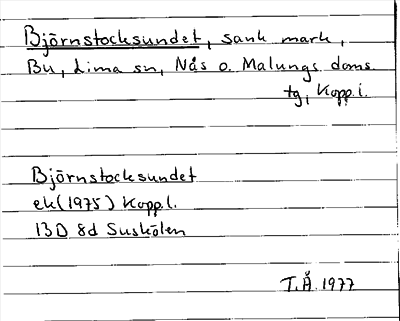 Björnstocksundet, sank mark,
Bu, Lima sn, Nås o. Malungs doms.
tg, Kopp.l.
Björnstocksundet
ek (1975) Kopp.l.
13D 8d Suskölen
T.Å. 1977